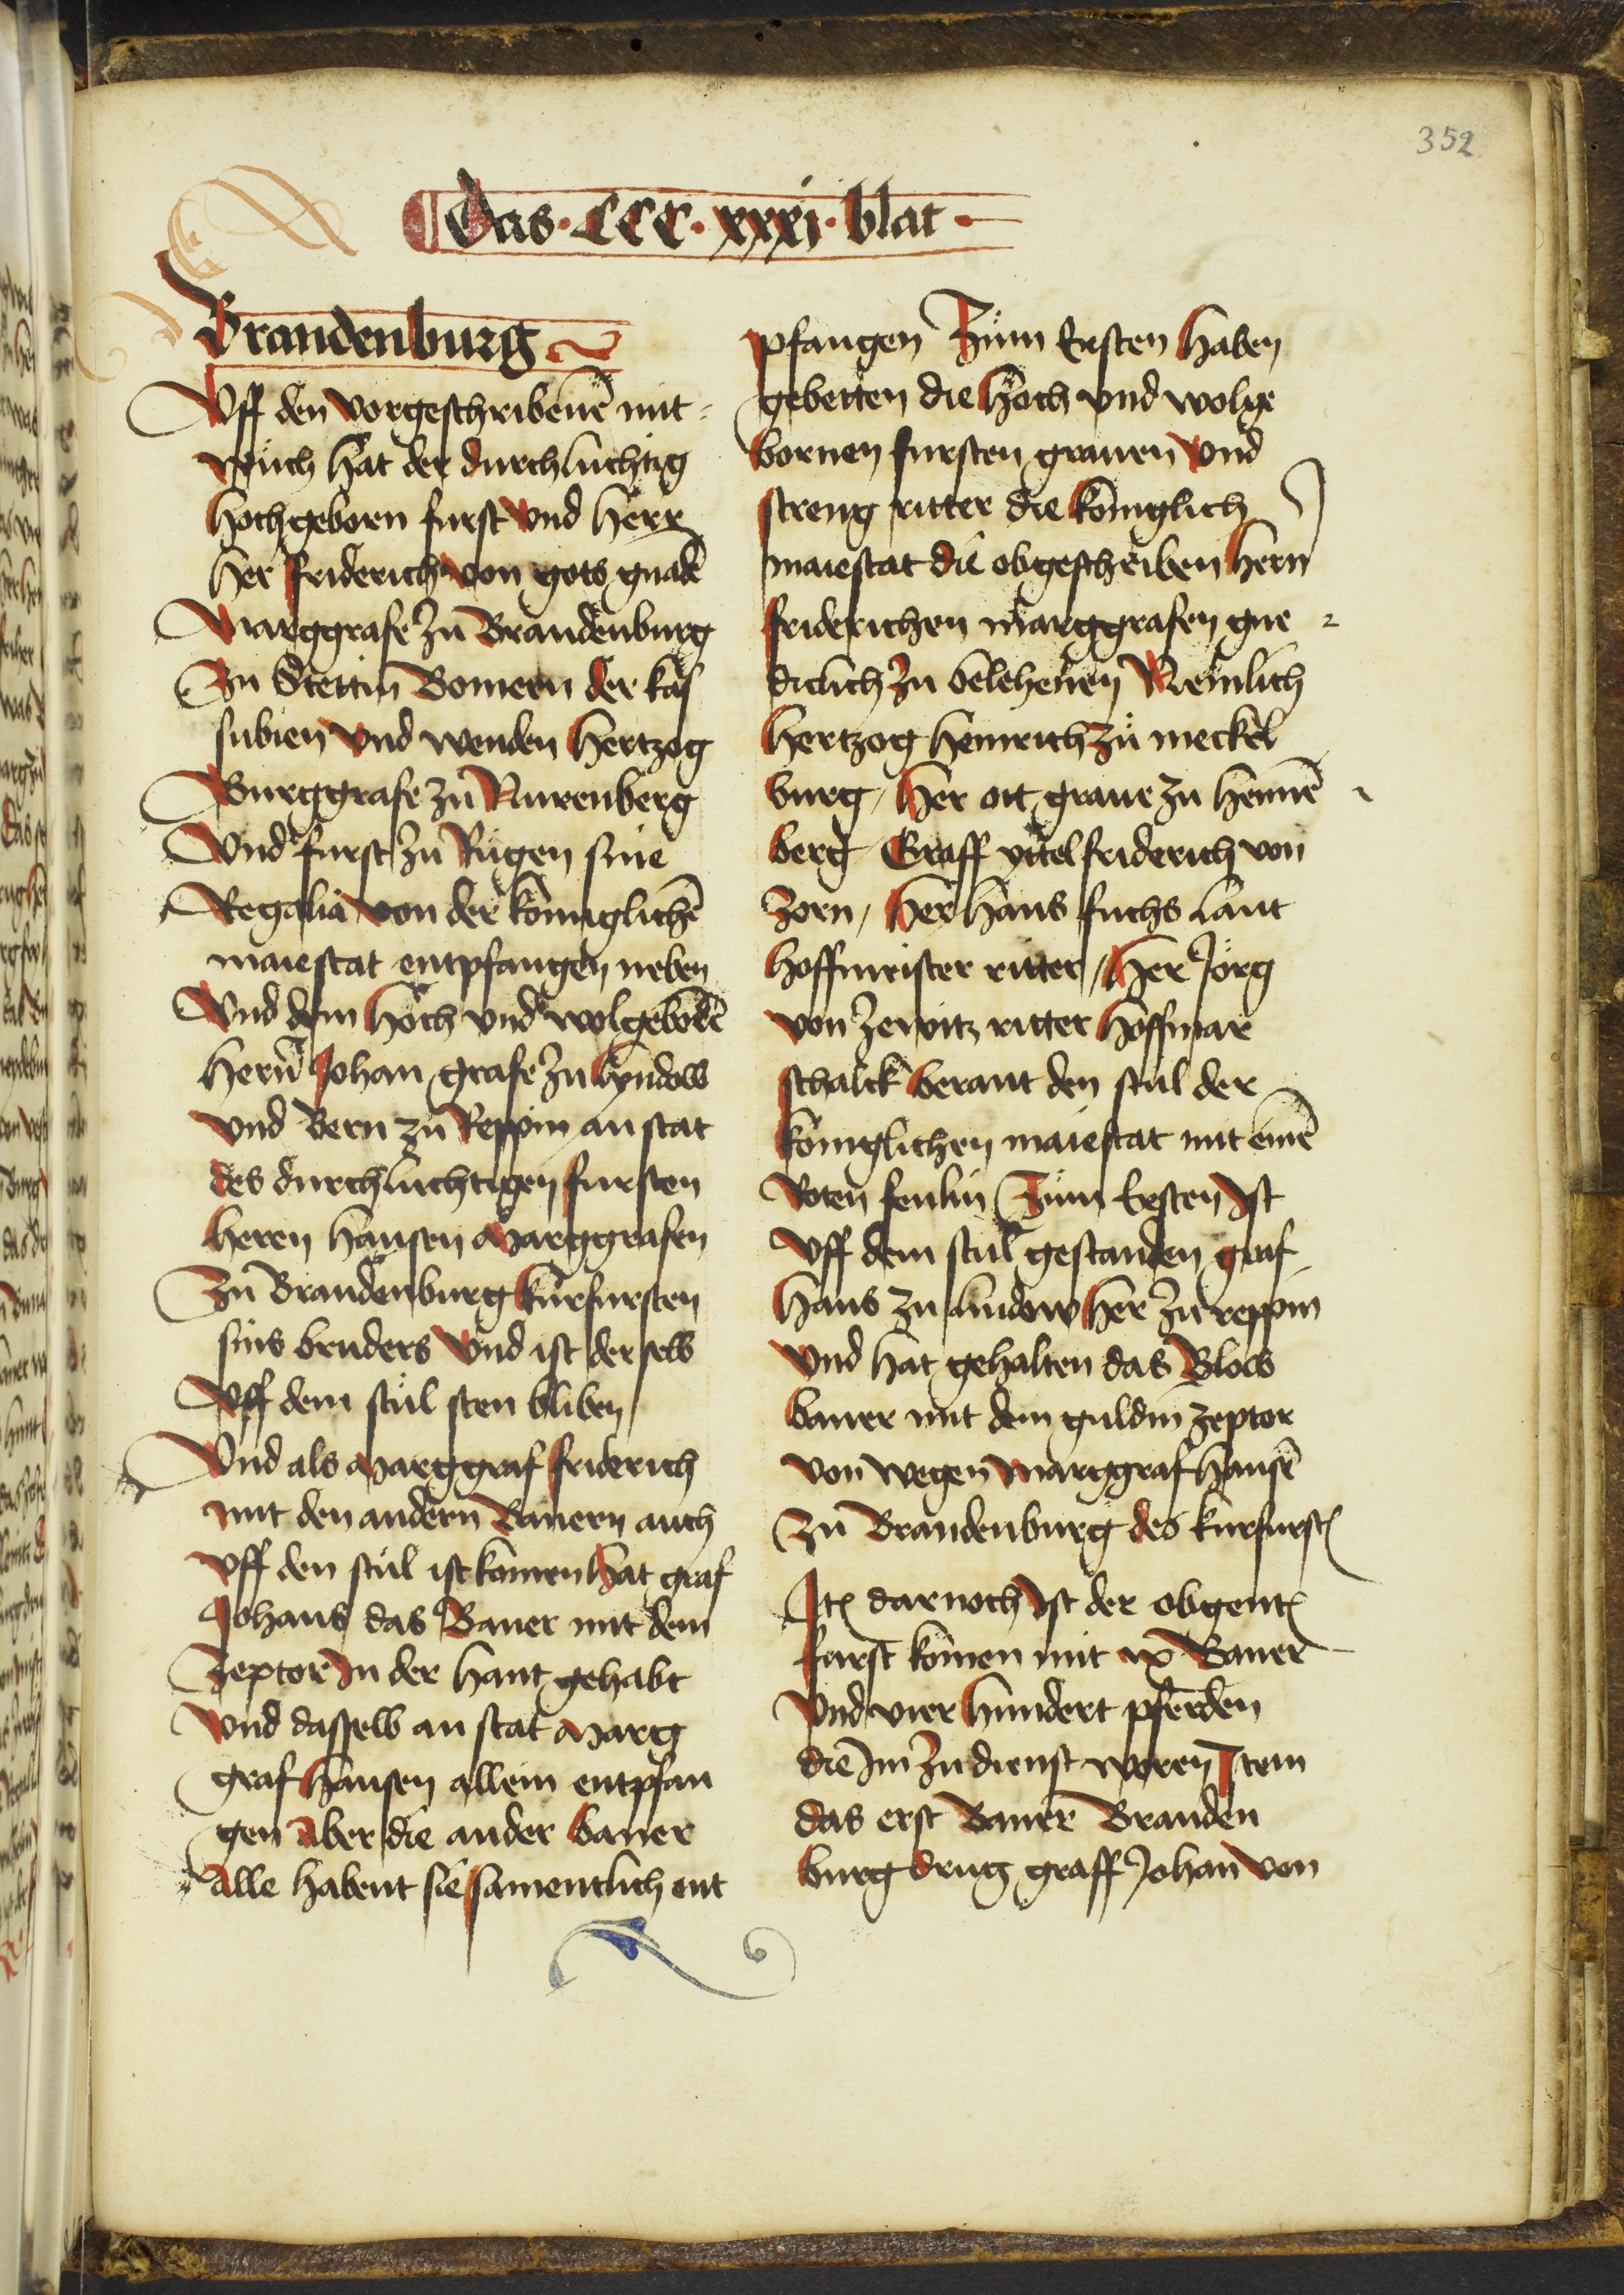 352
Das · CCC · xxxj · blat ·
Brandenburg
Vff den vorgeschribenē mit=
wuch hat der durchluchtig
hochgeborn furst vnd herr
her friderich von gots gnadē
Marggrafe zu Brandenburg
Zu Stettin Bomern der kas
subien vnd wenden hertzog
Burggrafe zu Nurenberg
Vnd furst zu Rugen sine
Regalia von der koniglichē
maiestat entpfangen neben
Vnd dem hoch vnd wolgebornē
hern̄ Johan grafe zu lyndow
vnd hern zu Reppin an stat
des durchluchtigen fursten
heren hansen Marggrafen
Zu Brandenburg kurfursten
sins bruders vnd ist derselb
vff dem stul sten bliben
Vnd als Marggraf friderich
mit den andern Banern auch
vff den stul ist komen hat graf
Johans das Baner mit dem
Zeptor jn der hant gehabt
vnd dasselb an stat Marg
graf hansen allein entpfan
gen Aber die ander baner
Alle habent sie samentlich ent
pfangen Zum Ersten haben
gebetten die hoch vnd wolge
bornen fursten grauen vnd
streng ritter die koniglich
maiestat die obgeschriben hern
friderichen marggrafen gne=
diclich zu belehenen Nemlich
hertzog heinrich zu meckel
burg / her ott graue zu hennē=
berg Graff yttelfriderich von
Zorn / her hans fuchs lant
hoffmeister ritter / her Jorg
von Zewitz ritter hoffmar
schalck berant den stul der
koniglichen maiestat mit einē
Roten fenlin Zum Ersten jst
Vff dem stul gestanden graf
hans zu lindow her zu reppin
vnd hat gehalten das Blow
baner mit dem guldin zeptor
von wegen marggraf hansē
zu Brandenburg des kurfurst
Jt darnoch jst der obgent
furst komen mit ix Baner
vnd vier hundert pferden
die jm zu dienst woren Jtem
das erst Baner Branden
burg drug graff Johan von